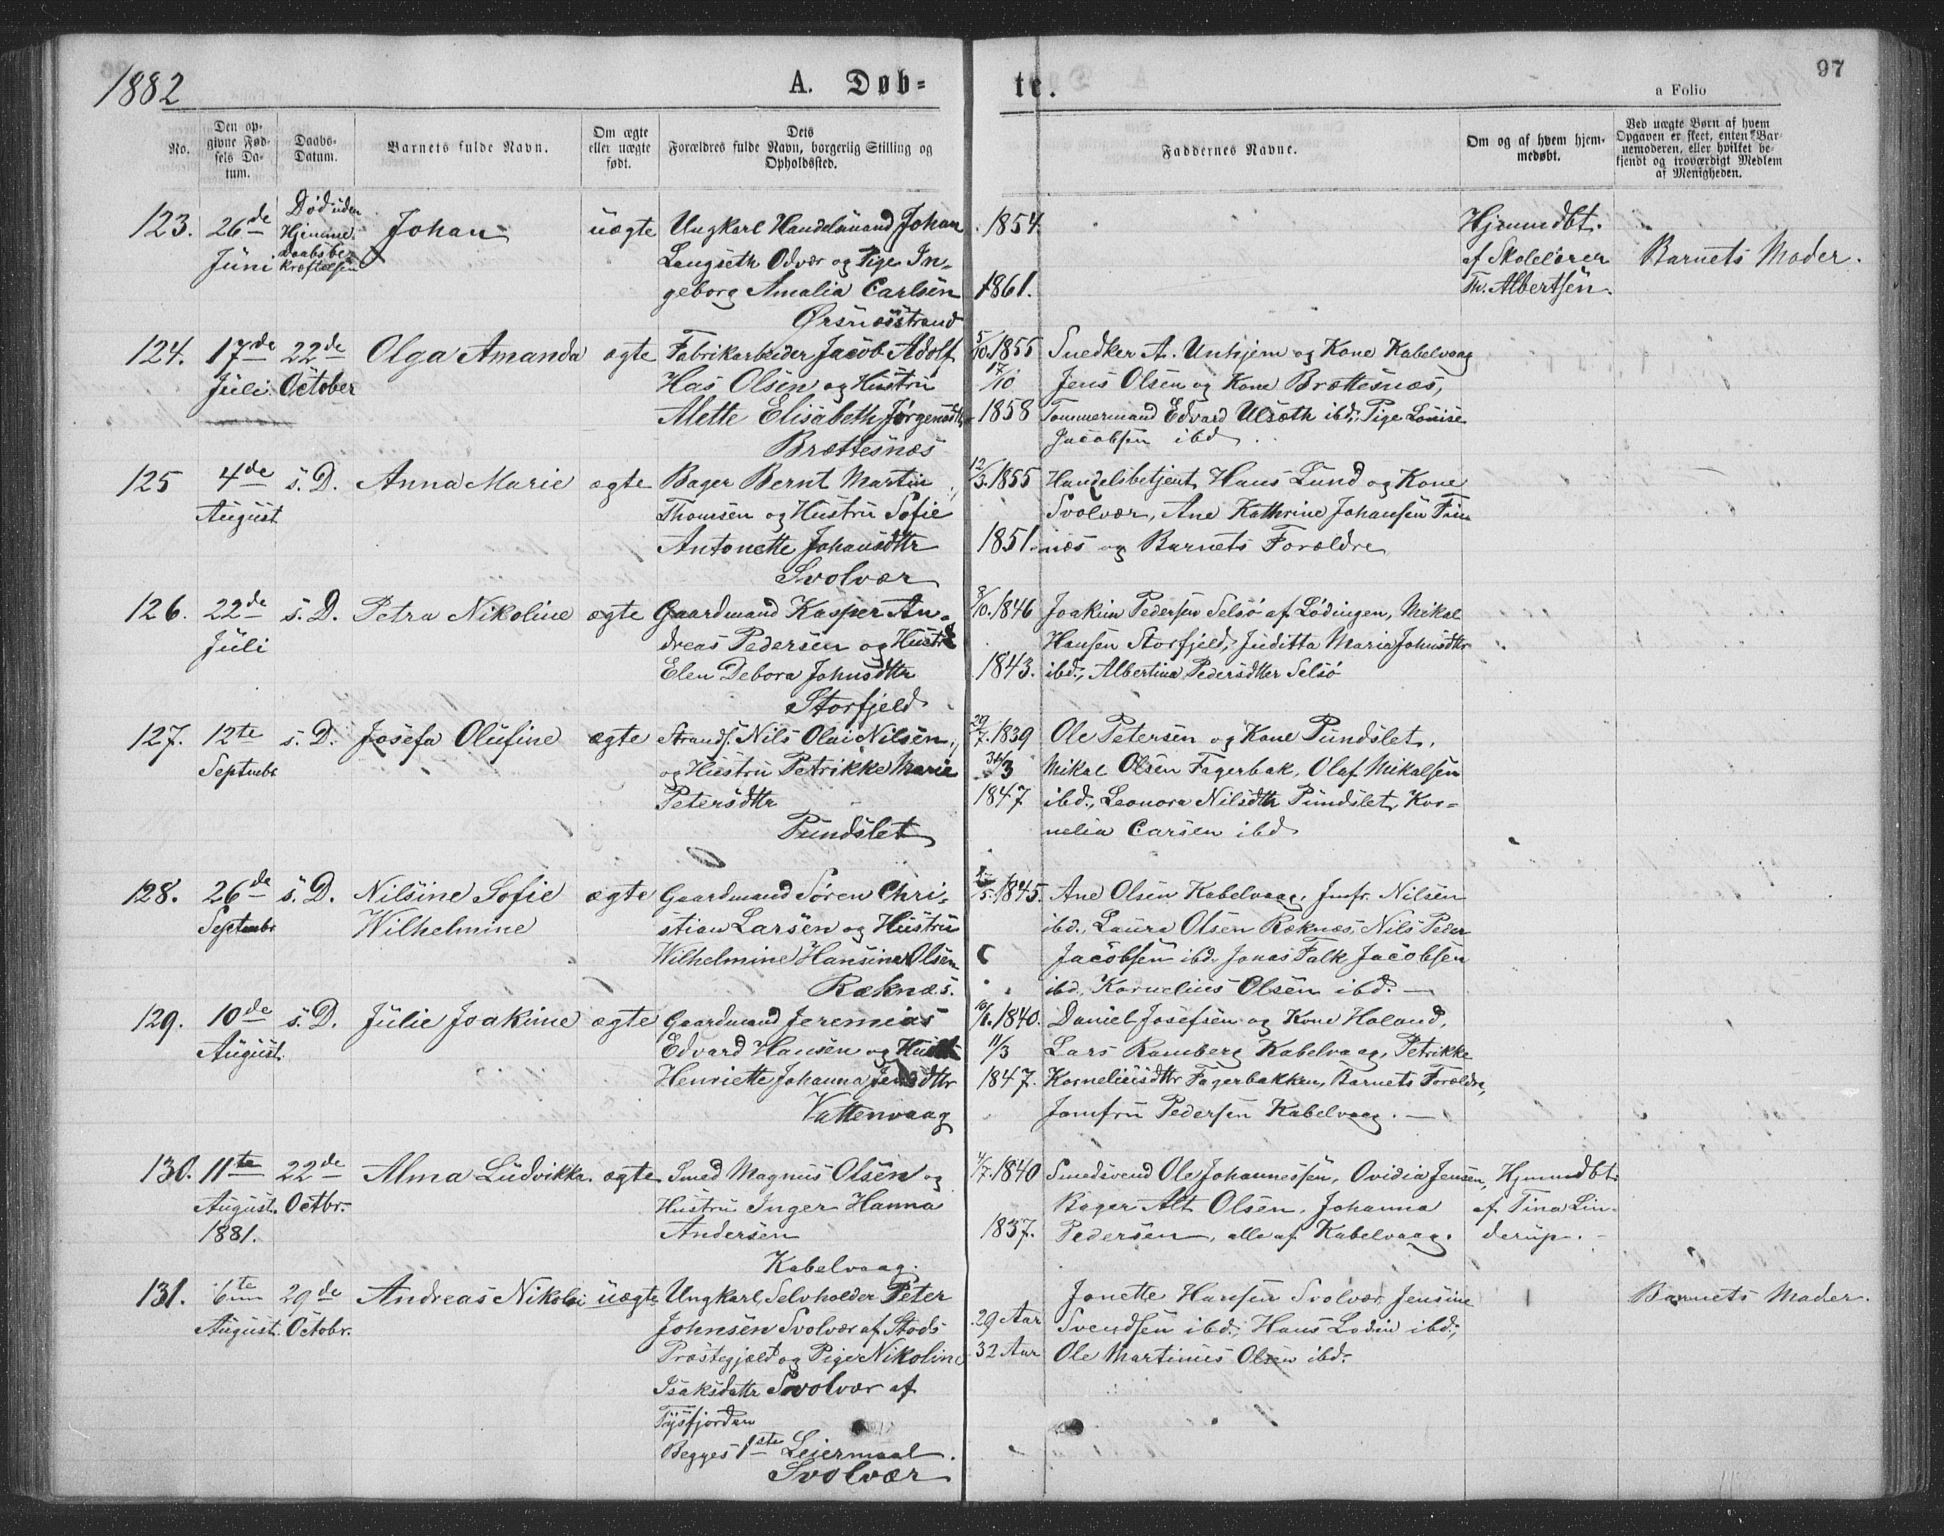 1882
A. Døb-
te.
97
a Folio
No.
Den op-
givne Fød-
sels Da-
tum.
Daabs-
Datum.
Barnets fulde Navn.
Om ægte
eller uægte
født.
Dets
Forældres fulde Navn, borgerlig Stilling og
Opholdssted.
Faddernes Navne.
Om og af hvem hjem-
medøbt.
Ved uægte Børn af hvem
Opgaven er skeet, enten Bar-
nemoderen, eller hvilket be-
kjendt og troværdigt Medlem
af Menigheden.
123. 26de Juni
Død uden
Hjemme-
Daabsbe-
kræftelsen
Johan
uægte
Ungkarl Handelsmand Johan
Langseth Odvær og Pige In-
geborg Amalia Carlsen
Ørsnæsstrand
1854.
1861.
Hjemmdbt.
af Skolelærer
Th. Albertsen.
Barnets Moder.
124. 17de Juli
22de October
Olga Amanda
ægte
Fabrikarbeider Jacob Adolf
Has Olsen og Hustru
Alette Elisabeth Jørgensdtr
Brættesnæs
5/10. 1855
17/10
1858
Snedker A. Unhjem og Kone Kabelvaag
Jens Olsen og Kone Brættesnæs,
Tømmermand Edvard Ulsæth ibd., Pige Louise
Jacobsen ibd
125 4de August
s. D.
Anna Marie
ægte
Bager Bernt Martin
Thomsen og Hustru Sofie
Antonette Johansdttr
Svolvær
12/3. 1855
1851.
Handelsbetjent Hans Lund og Kone
Svolvær, Ane Kathrine Johansen Fin
næs og Barnets Forældre
126. 22de Juli
s. D.
Petra Nikoline
ægte
Gaardmand Kasper An-
dreas Pedersen og Hustru
Elen Debora Johnsdttr
Storfjeld
8/10. 1846
1843.
Joakim Pedersen Selsø af Lødingen, Mikal
Hansen Storfjeld, Juditta Maria Johnsdttr
ibd., Albertina Pedersdtter Selsø
127. 12te Septmbr
s. D.
Josefa Olufine
ægte
Strands. Nils Olai Nilsen
og Hustru Petrikke Marie
Petersdttr
Pundslet
29/7. 1839
1847
Ole Petersen og Kone Pundslet,
Mikal Olsen Fagerbak, Olaf Mikalsen
ibd., Leonora Nilsdttr Pundslet, Kor-
nelia Carsen ibd
128. 26de Septmbr
s. D.
Nilsine Sofie
Wilhelmine
ægte
Gaardmand Søren Chri-
stian Larsen og Hustru
Wilhelmine Hansine Olsen
Reknæs.
1845.
Ane Olsen Kabelvaag, Jmfr. Nilsen
ibd., Laura Olsen Reknæs, Nils Peder
Jacobsen ibd. Jonas Falk Jacobsen
ibd, Kornelius Olsen ibd. —
129. 10de August.
s. D.
Julie Joakime
ægte
Gaardmand Jeremias
Edvard Hansen og Hustru
Henriette Johanna Jensdttr
Vattenvaag
1840.
11/3
1847.
Daniel Josefsen og Kone Holand,
Lars Ramberg Kabelvaag, Petrikke
Korneliusdttr Fagerbakken, Barnets Forældre,
Jomfru Pedersen Kabelvaag. —
130. 11te August. 1881.
22de Octbr.
Alma Ludvikka
ægte
Smed Magnus Olsen og
Hustru Inger Hanna
Andersen
Kabelvaag.
4/7. 1840
1837.
Smedsvend Ole Johannessen, Ovidia Jensen,
Bager Alt Olsen, Johanna
Pedersen, alle af Kabelvaag.
Hjemmdbt.
af Tina Lin-
derup. -
131. 6te August.
29de Octobr.
Andreas Nikolai
uægte
Ungkarl, Selvholder Peter
Johnsen Svolvær af Stods
Præstegjæld og Pige Nikoline
Isaksdattr Svolvær af
Tysfjorden
Begges 1ste Leiermaal.
Svolvær
29 Aar
32 Aar
Jonette Hansen Svolvær, Jensine
Svendsen ibd., Hans Lodin ibd.,
Ole Martinus Olsen ibd.
Barnets Moder.